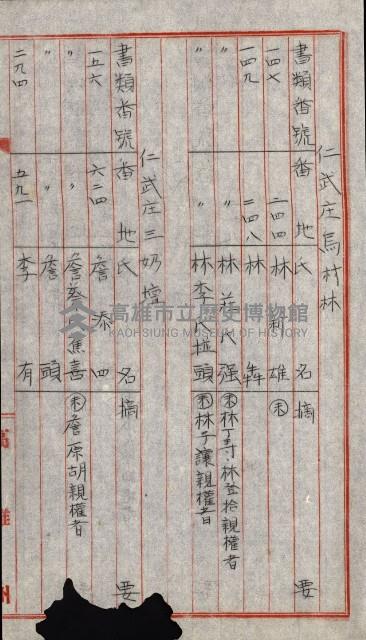 仁武庄烏材林
書類番號 番地 氏名 摘要
一四七 二四四 林新雄 ㊍
一四九 二四八 林犇
〃 〃 林莊氏强 林丁寺、林登拾親權者
〃 〃 林李氏拉頭 林子讓親權者
仁武庄三奶壇
書類番號 番地 氏名 摘要
一五六 六二四 詹添四
〃 〃 詹蔡氏焦喜 詹原胡親權者
〃 〃 詹頭
二九四 五九一 李有
高雄州
高雄市立歷史博物館
KAOHSIUNG MUSEUM OF HISTORY